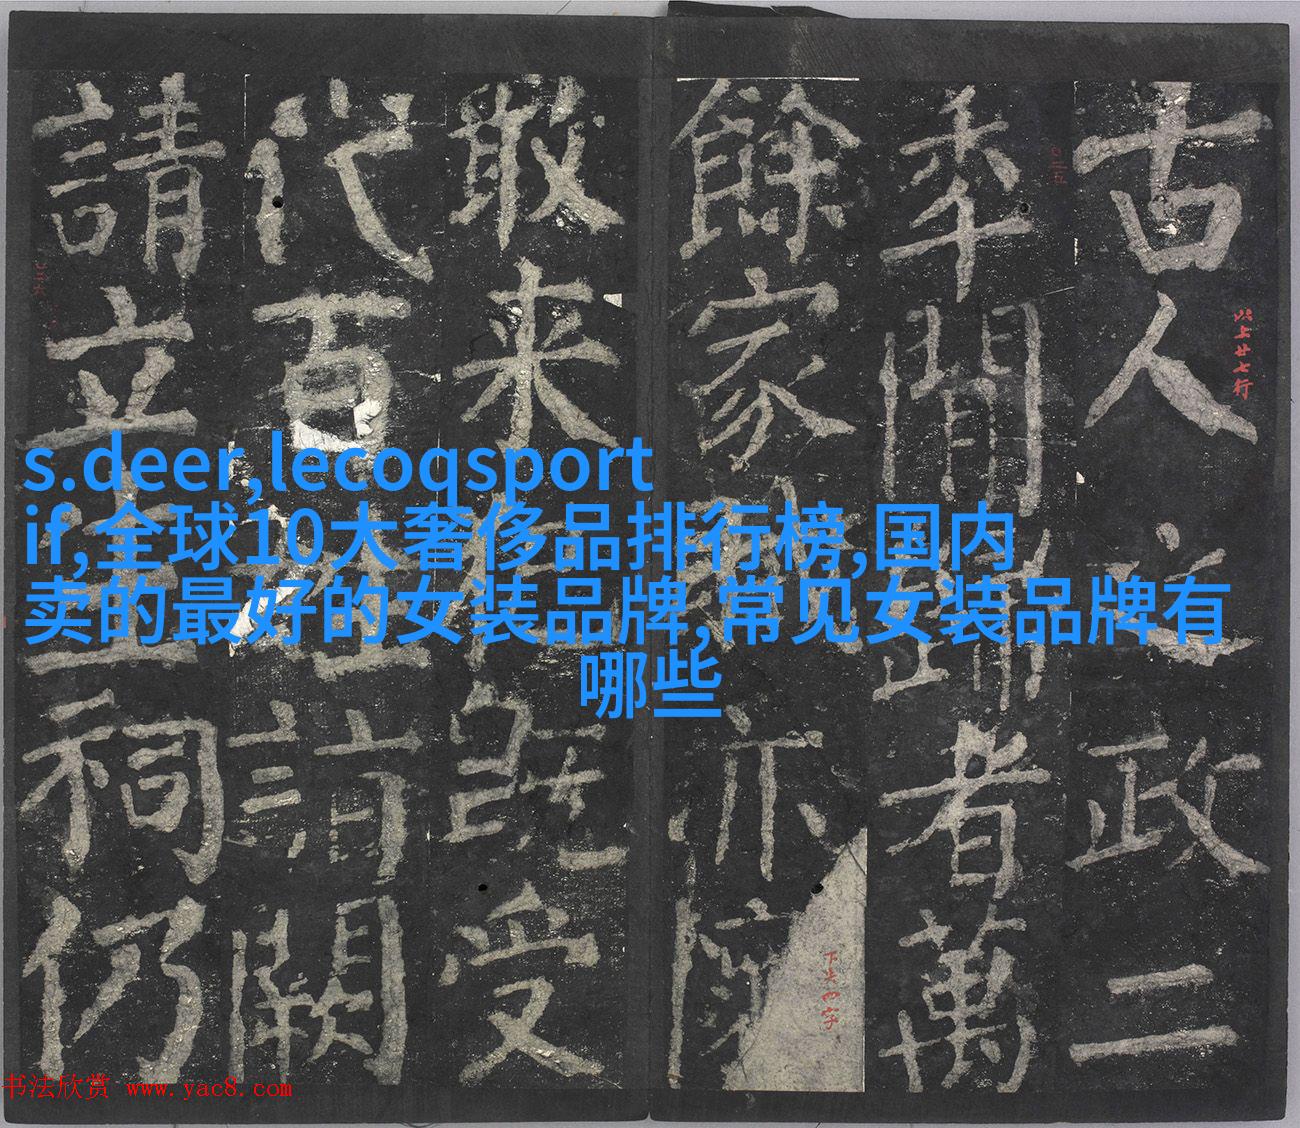 古人政二
以上廿七行
年間歸者萬
餘家亦
敢来既受
代百詣闕
請立生祠仍
s.deer,lecoqsport
if,全球10大奢侈品排行榜,国内
卖的最好的女装品牌,常见女装品牌有
哪些
书法欣赏 www.yac8.com